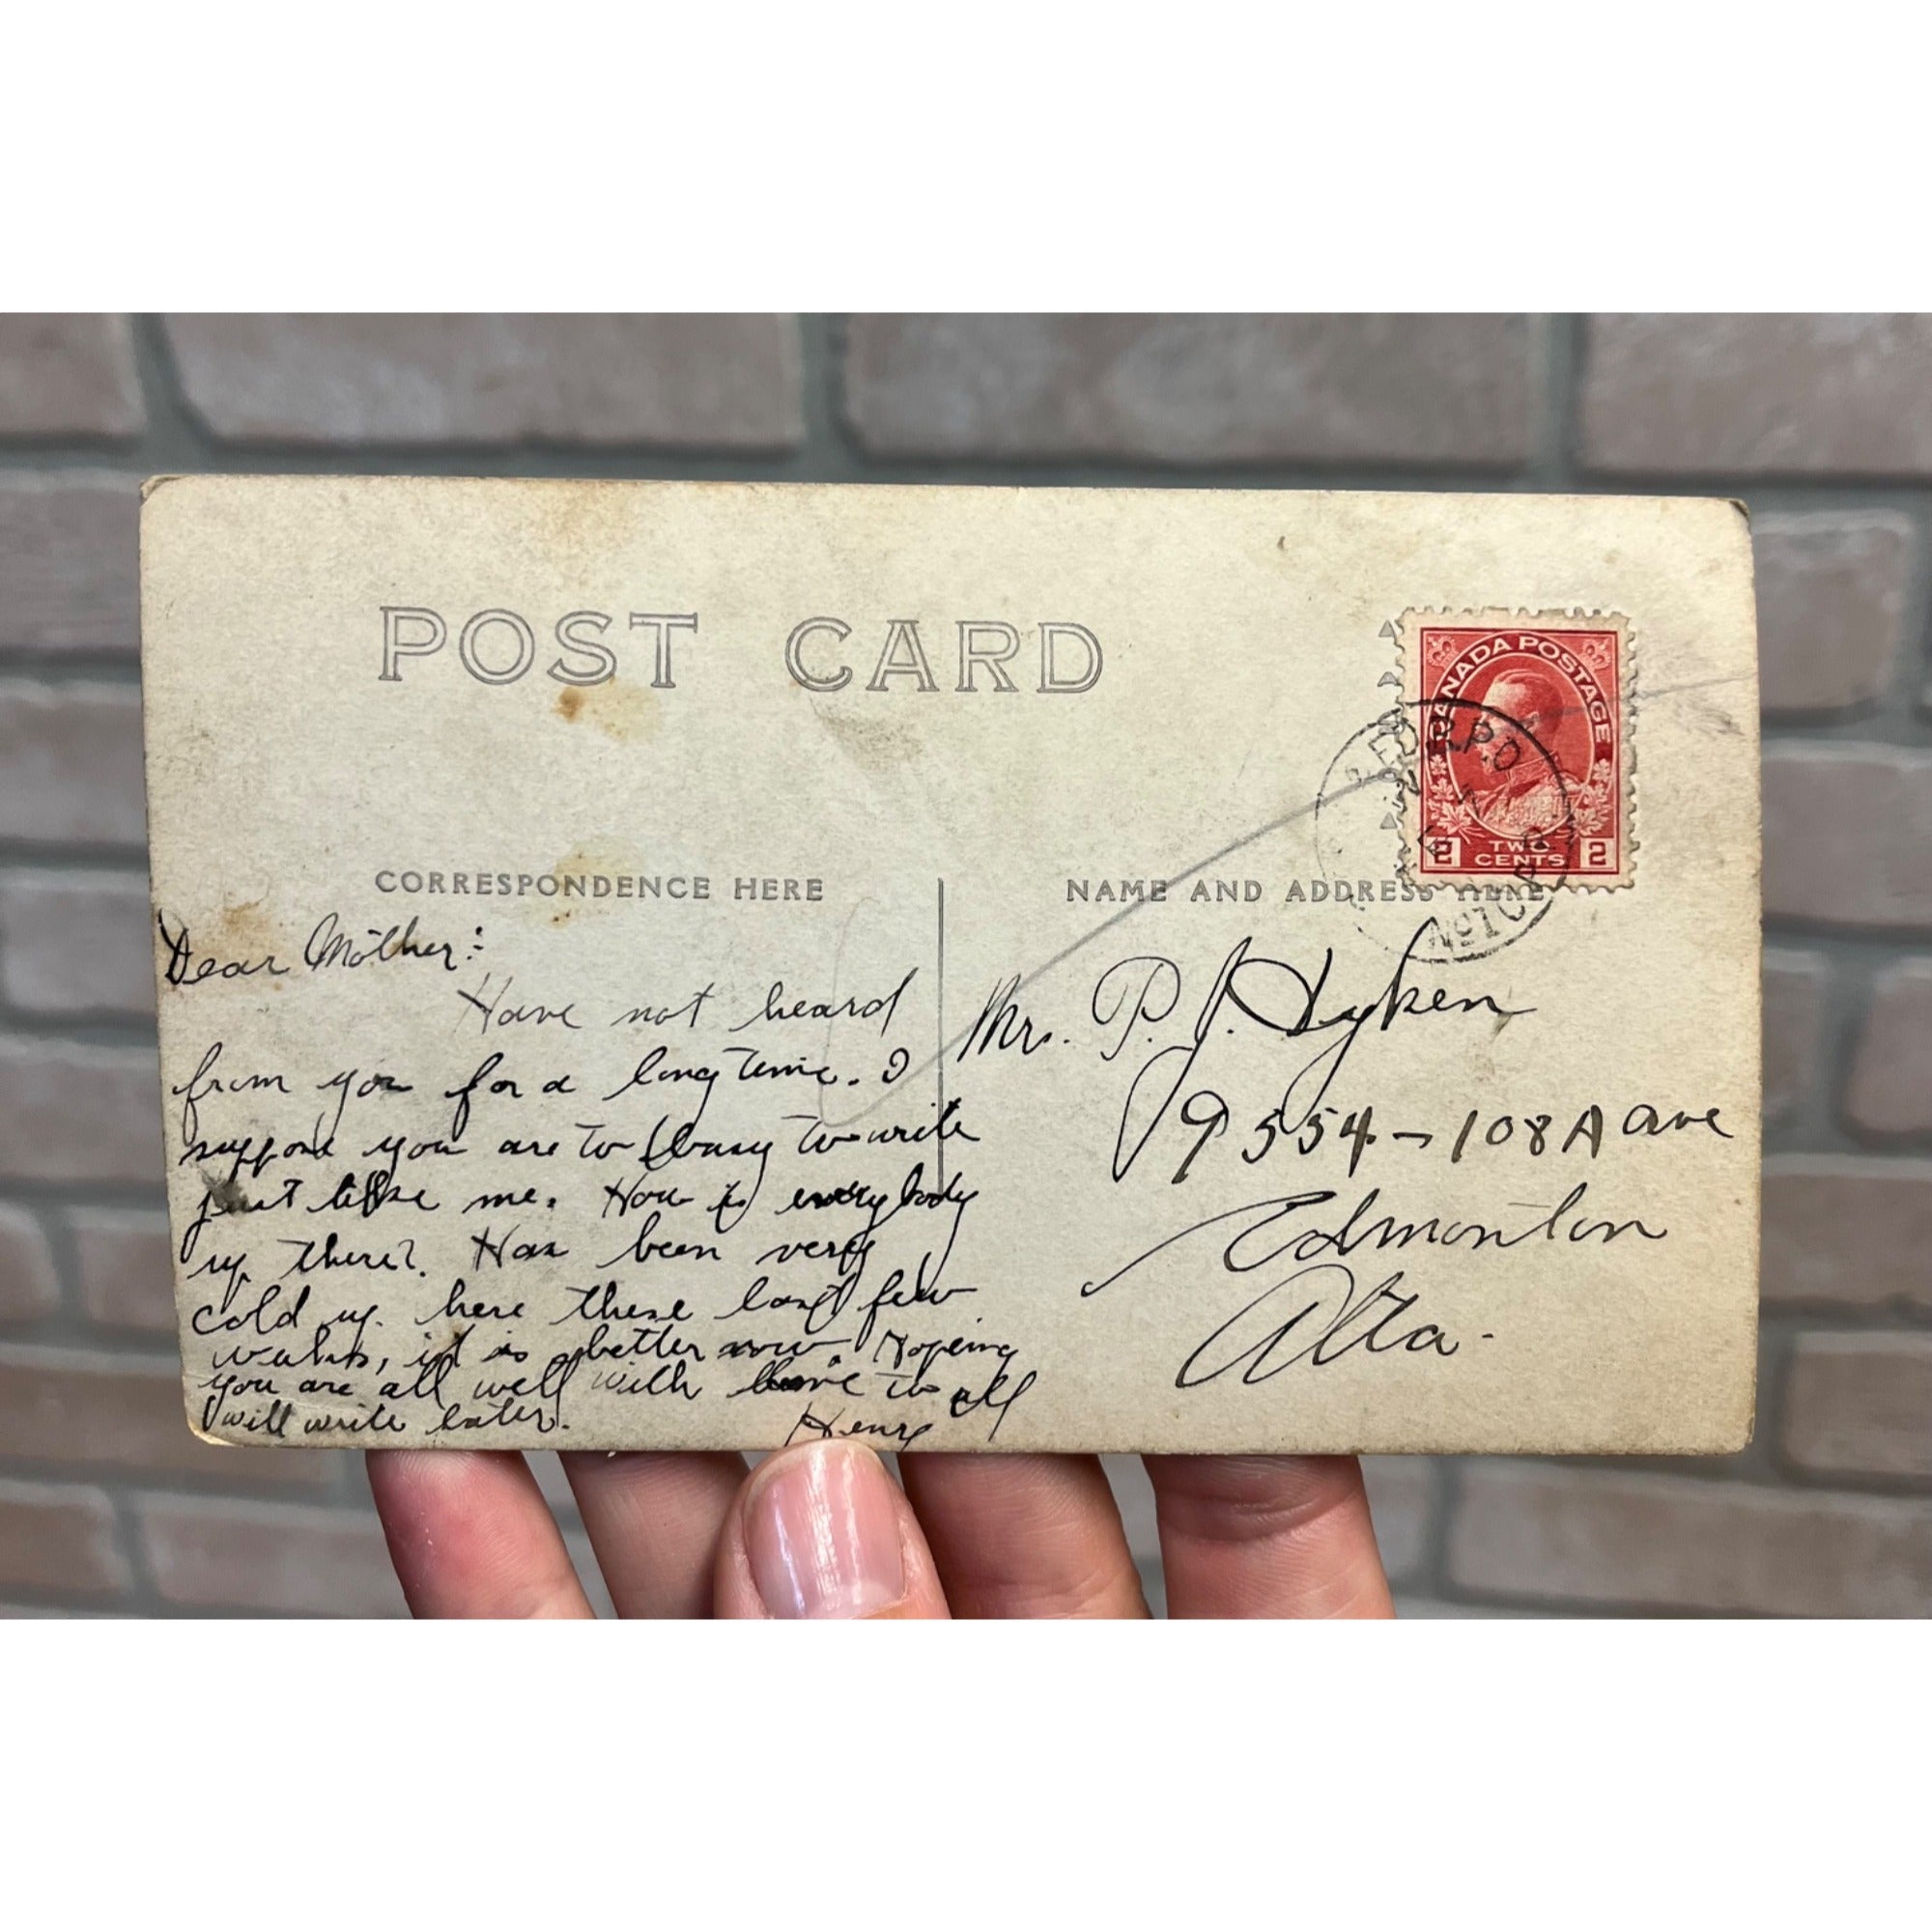 POST CARD
CANADA POSTAGE
2 TWO CENTS 2
R.P.O.
No 1
CORRESPONDENCE HERE
NAME AND ADDRESS HERE
Dear Mother:
Have not heard
from you for a long time. I
suppose you are to busy to write
just like me. How is everybody
up there? Has been very
cold up here these last few
weeks, it is better now. Hopeing
you are all well with love to all
will write later.
Henry
Mrs. P. J. Dyken
9554-108A ave
Edmonton
Alta.